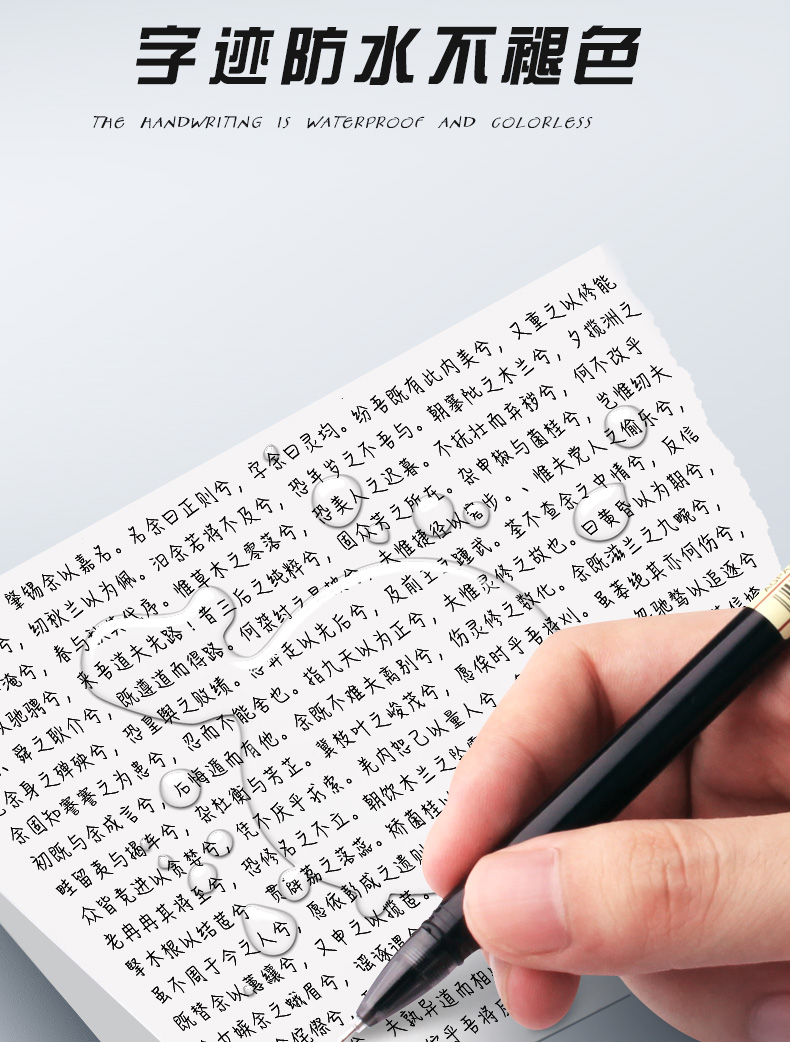 字迹防水不褪色
THE HANDWRITING IS WATERPROOF AND COLORLESS
肇锡余以嘉名。名余曰正则兮，字余曰灵均。纷吾既有此内美兮，又重之以修能
兮，纫秋兰以为佩。汩余若将不及兮，恐年岁之不吾与。朝搴阰之木兰兮，夕揽洲之
淹兮，春与秋其代序。惟草木之零落兮，恐美人之迟暮。不抚壮而弃秽兮，何不改乎
以驰骋兮，来吾道夫先路！昔三后之纯粹兮，固众芳之所在。杂申椒与菌桂兮，岂惟纫夫
、舜之耿介兮，既遵道而得路。何桀纣之昌披兮，夫惟捷径以窘步。、惟夫党人之偷乐兮，
余身之殚殃兮，恐皇舆之败绩。忽奔走以先后兮，及前王之踵武。荃不查余之中情兮，反信
余固知謇謇之为患兮，忍而不能舍也。指九天以为正兮，夫惟灵修之故也。曰黄昏以为期兮，
初既与余成言兮，后悔遁而有他。余既不难夫离别兮，伤灵修之数化。余既滋兰之九畹兮，
畦留夷与揭车兮，杂杜衡与芳芷。冀枝叶之峻茂兮，愿俟时乎吾将刈。虽萎绝其亦何伤兮，
众皆竞进以贪婪兮，凭不厌乎求索。羌内恕己以量人兮， 忽驰骛以追逐兮
老冉冉其将至兮，恐修名之不立。朝饮木兰之坠
擥木根以结茝兮，贯薜荔之落蕊。矫菌桂以
虽不周于今之人兮，愿依彭成之遗则
既替余以蕙纕兮，又申之以揽茝。
女嫉余之蛾眉兮，谣诼谓
侘傺兮， 夫孰异道而相